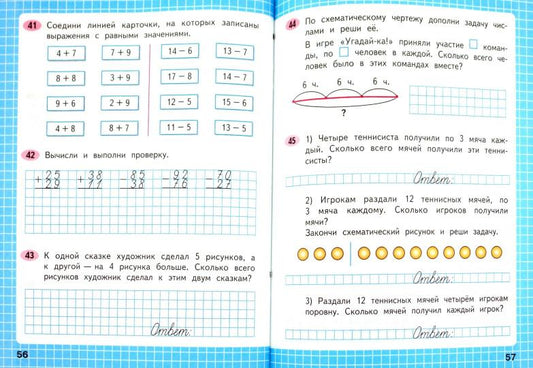 41 Соедини линией карточки, на которых записаны
выражения с равными значениями.
4+7 7+9 14−6 13−7
8+8 3+9 17−8 14−7
9+6 2+9 12−5 15−6
4+8 8+7 11−5 13−5
42 Вычисли и выполни проверку.
+25 +38 −85 −92 −70
29 11 38 76 27
43 К одной сказке художник сделал 5 рисунков, а
к другой — на 4 рисунка больше. Сколько всего
рисунков художник сделал к этим двум сказкам?
Ответ:
56
44 По схематическому чертежу дополни задачу чис-
лами и реши её.
В игре «Угадай-ка!» приняли участие коман-
ды, по человек в каждой. Сколько всего че-
ловек было в этих командах вместе?
6 ч. 6 ч. 6 ч.
?
45 1) Четыре теннисиста получили по 3 мяча каж-
дый. Сколько всего мячей получили эти тенни-
систы?
Ответ:
2) Игрокам раздали 12 теннисных мячей, по
3 мяча каждому. Сколько игроков получили
мячи?
Закончи схематический рисунок и реши задачу.
Ответ:
3) Раздали 12 теннисных мячей четырём игрокам
поровну. Сколько мячей получил каждый игрок?
Ответ:
57